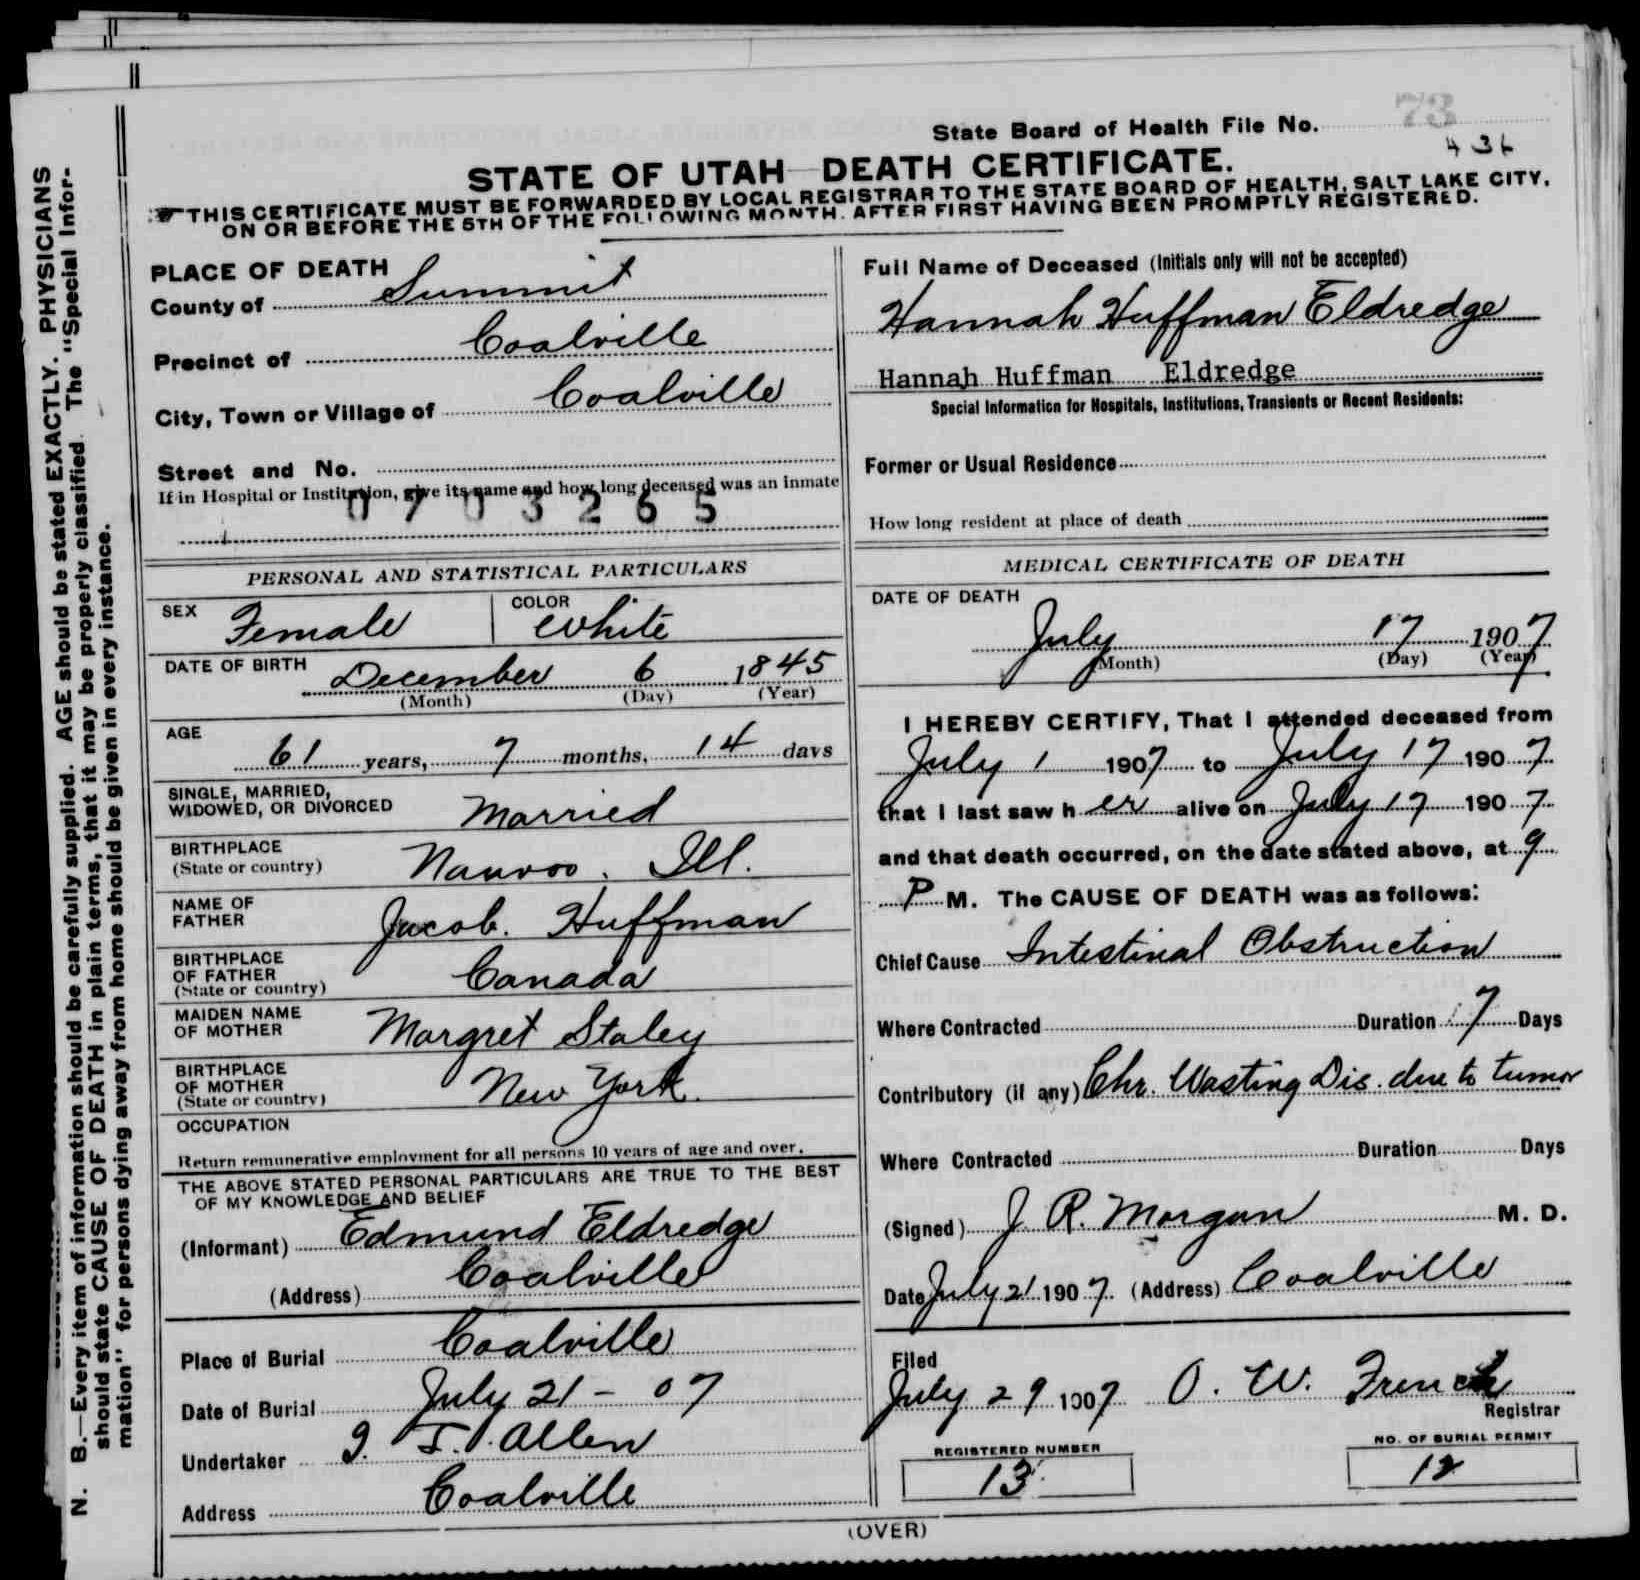 State Board of Health File No. 73
436
STATE OF UTAH DEATH CERTIFICATE.
THIS CERTIFICATE MUST BE FORWARDED BY LOCAL REGISTRAR TO THE STATE BOARD OF HEALTH, SALT LAKE CITY,
ON OR BEFORE THE 5TH OF THE FOLLOWING MONTH, AFTER FIRST HAVING BEEN PROMPTLY REGISTERED.
N. B.—Every item of information should be carefully supplied. AGE should be stated EXACTLY. PHYSICIANS
should state CAUSE OF DEATH in plain terms, that it may be properly classified. The "Special Infor-
mation" for persons dying away from home should be given in every instance.
PLACE OF DEATH
County of Summit
Precinct of Coalville
City, Town or Village of Coalville
Street and No.
If in Hospital or Institution, give its name and how long deceased was an inmate
0703265
PERSONAL AND STATISTICAL PARTICULARS
SEX Female COLOR White
DATE OF BIRTH December 6 1845
(Month) (Day) (Year)
AGE
61 years, 7 months, 14 days
SINGLE, MARRIED,
WIDOWED, OR DIVORCED Married
BIRTHPLACE
(State or country) Nauvoo. Ill.
NAME OF
FATHER Jacob. Huffman
BIRTHPLACE
OF FATHER
(State or country) Canada
MAIDEN NAME
OF MOTHER Margret Staley
BIRTHPLACE
OF MOTHER
(State or country) New York.
OCCUPATION
Return remunerative employment for all persons 10 years of age and over.
THE ABOVE STATED PERSONAL PARTICULARS ARE TRUE TO THE BEST
OF MY KNOWLEDGE AND BELIEF
(Informant) Edmund Eldredge
(Address) Coalville
Place of Burial Coalville
Date of Burial July 21 - 07
Undertaker J. T. Allen
Address Coalville
Full Name of Deceased (Initials only will not be accepted)
Hannah Huffman Eldredge
Hannah Huffman Eldredge
Special Information for Hospitals, Institutions, Transients or Recent Residents:
Former or Usual Residence
How long resident at place of death
MEDICAL CERTIFICATE OF DEATH
DATE OF DEATH
July 17 1907
(Month) (Day) (Year)
I HEREBY CERTIFY, That I attended deceased from
July 1 1907 to July 17 1907
that I last saw her alive on July 17 1907.
and that death occurred, on the date stated above, at 9
P M. The CAUSE OF DEATH was as follows:
Chief Cause Intestinal Obstruction
Where Contracted Duration 7 Days
Contributory (if any) Chr. Wasting Dis. due to tumor
Where Contracted Duration Days
(Signed) J. R. Morgan M. D.
Date July 21 1907. (Address) Coalville
Filed
July 29 1907 O. W. French
Registrar
REGISTERED NUMBER
13
NO. OF BURIAL PERMIT
12
(OVER)